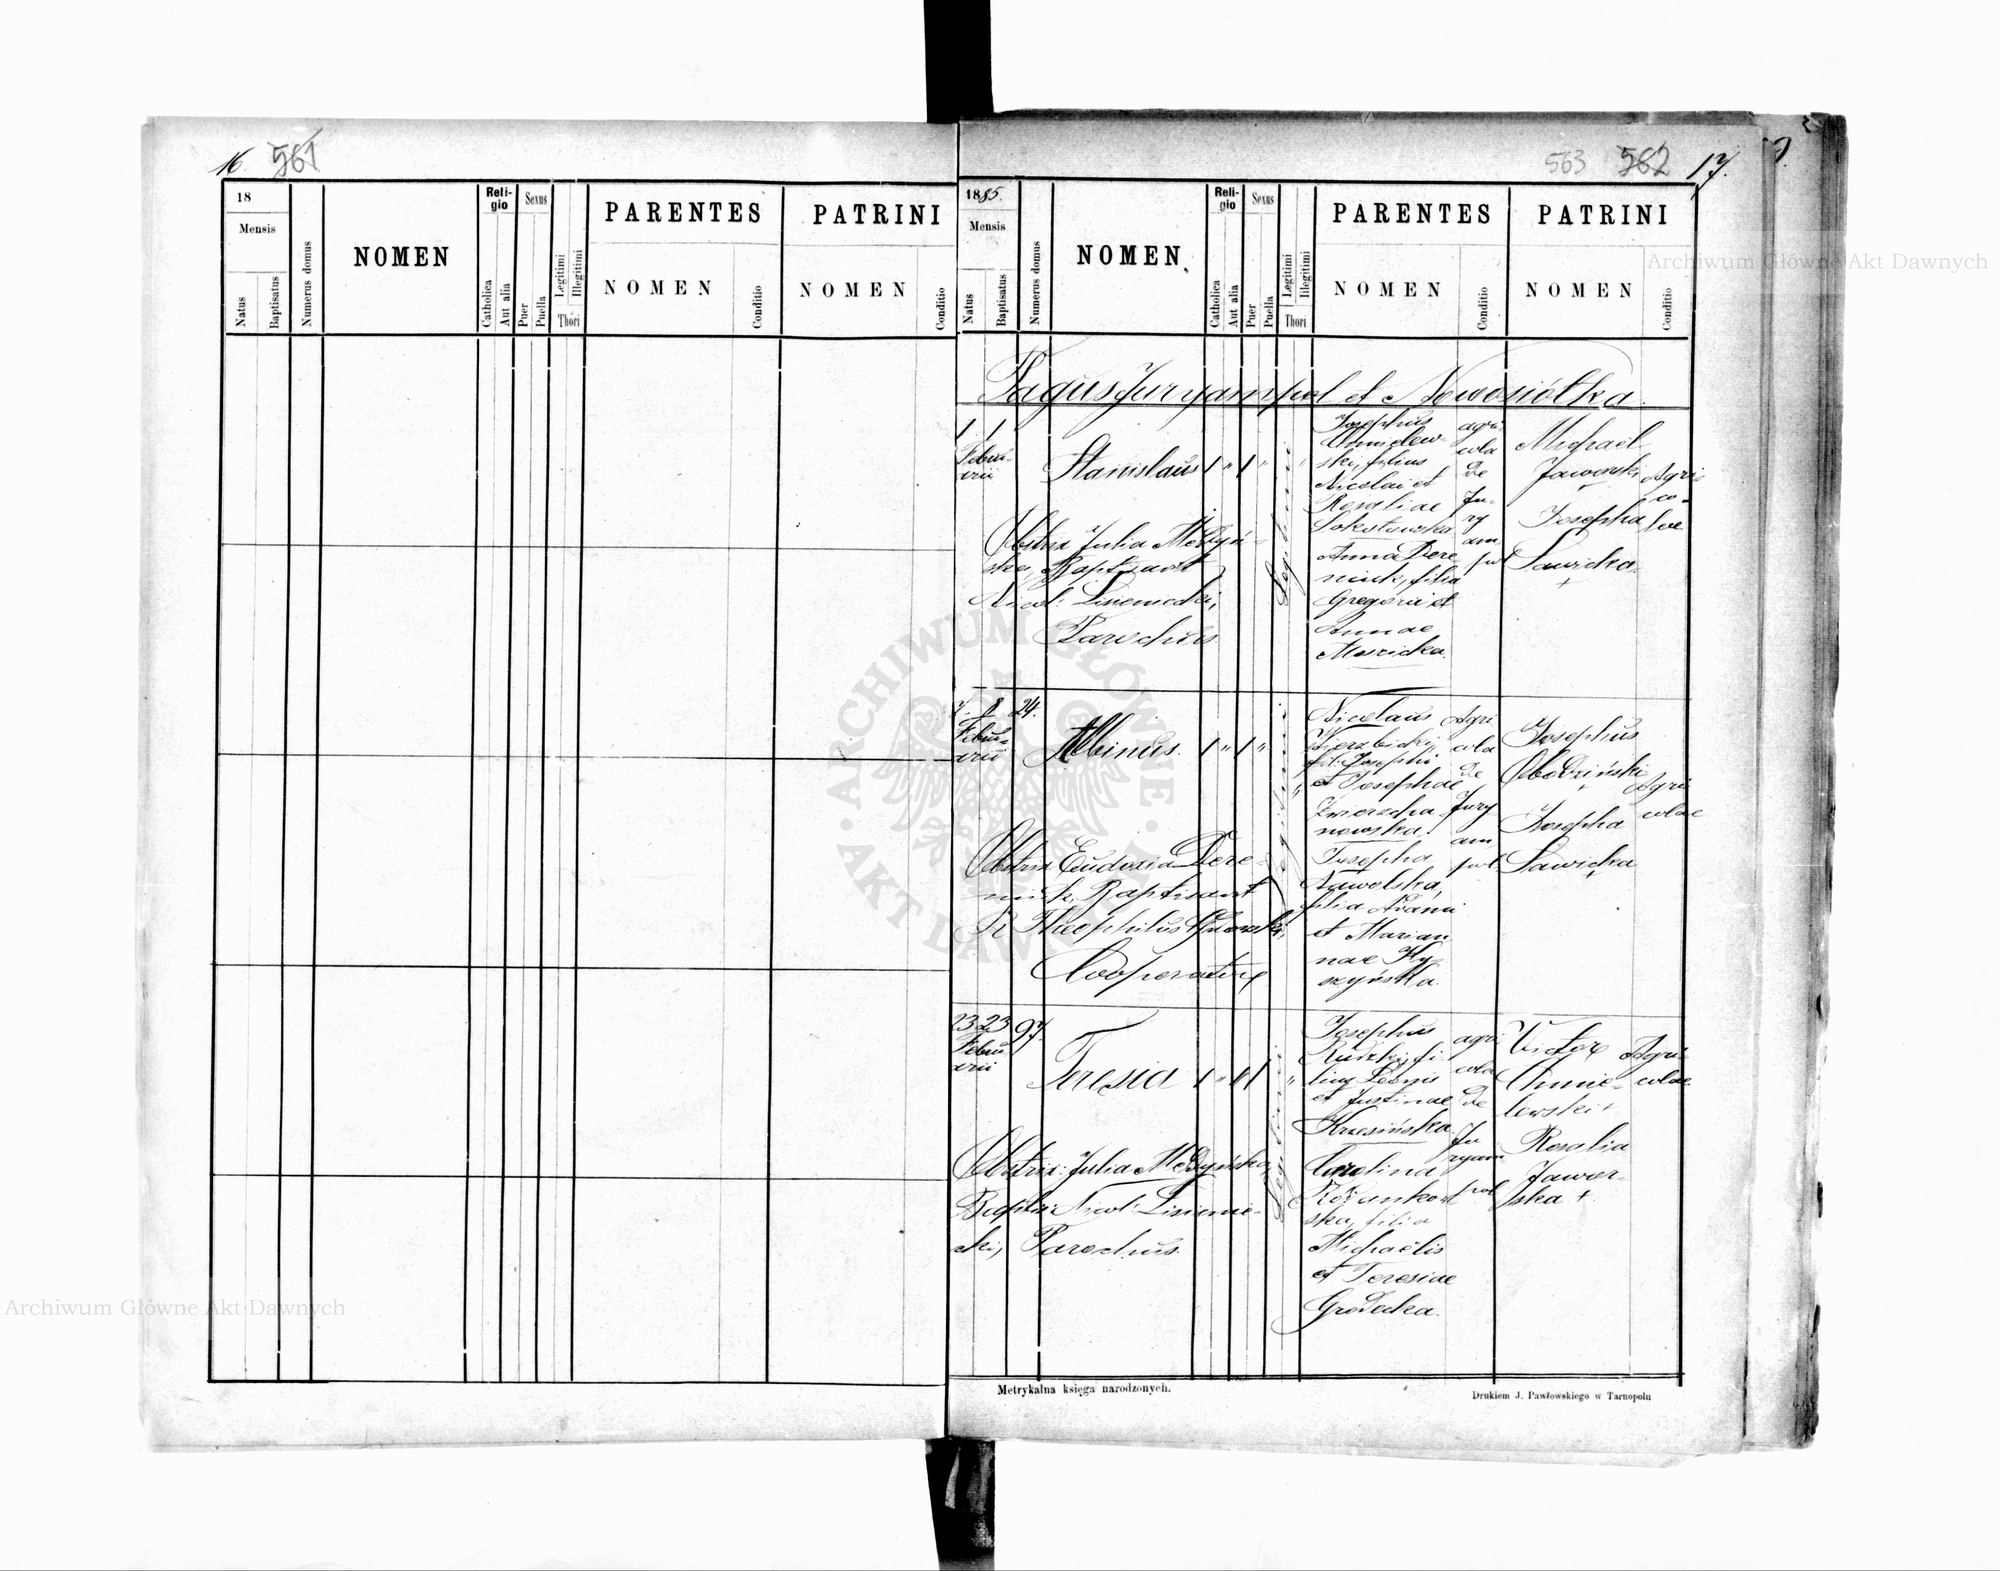 16. 561
18
Mensis
Natus
Baptisatus
Numerus domus
NOMEN
Reli-
gio
Catholica
Aut alia
Sexus
Puer
Puella
Legitimi
Illegitimi
Thori
PARENTES
NOMEN
Conditio
PATRINI
NOMEN
Conditio
563 562 17.
1885.
Mensis
Natus
Baptisatus
Numerus domus
NOMEN
Reli-
gio
Catholica
Aut alia
Sexus
Puer
Puella
Legitimi
Illegitimi
Thori
PARENTES
NOMEN
Conditio
PATRINI
NOMEN
Conditio
Pagus Juryampol et Nowosiółka.
1 1
Febru-
arii
Stanislaus 1 " 1 "
Legitimi
Obstrix Julia Medyń-
ska, Baptisavit
Nicol: Lisieniecki,
Parochus.
Josephus
Chmielew-
ski, filius
Nicolai et
Rosaliae
Sokołowska
Anna Dere
niuk, filia
Gregorii et
Annae
Mazicka.
agri-
cola
de
Ju-
ry
am
pol
Michaël
Jaworski
+
Josepha
Sawicka
+
Agri-
co-
lae
7. 8 24.
Febru-
arii
Albinus. 1 " 1 "
Legitimi
Obstrix Eudoxia Dere-
niuk, Baptisavit
R Theophilus
Cooperator
Nicolaus
Wierzbicki,
fil. Josephi
et Josephae
Zwierzcha-
nowska.
Josepha
Nawolska,
filia Adami
et Marian
nae Hy-
szyńska.
Agri
cola
de
Jury
am
pol
Josephus
Obodziński
+
Josepha
Sawicka
+
Agri
colae
23 23 97.
Febru
arii
Teresia 1 " " 1
Legitimi
Obstrix: Julia Medyńska,
Baptis: Nicol: Lisienie-
cki, Parochus.
Josephus
Rudzki, fi-
lius Leonis
et Justinae
Krzesińska.
Carolina
Rożankow
ska, filia
Michaëlis
et Teresiae
Grodecka.
agri
cola
de
Ju
ryam
pol
Victor
Chmie-
lewski +
Rosalia
Jawor-
ska +
Agri-
colae
Metrykalna księga narodzonych.
Drukiem J. Pawłowskiego w Tarnopolu
Archiwum Główne Akt Dawnych
Archiwum Główne Akt Dawnych
ARCHIWUM GŁÓWNE
AKT DAWNYCH